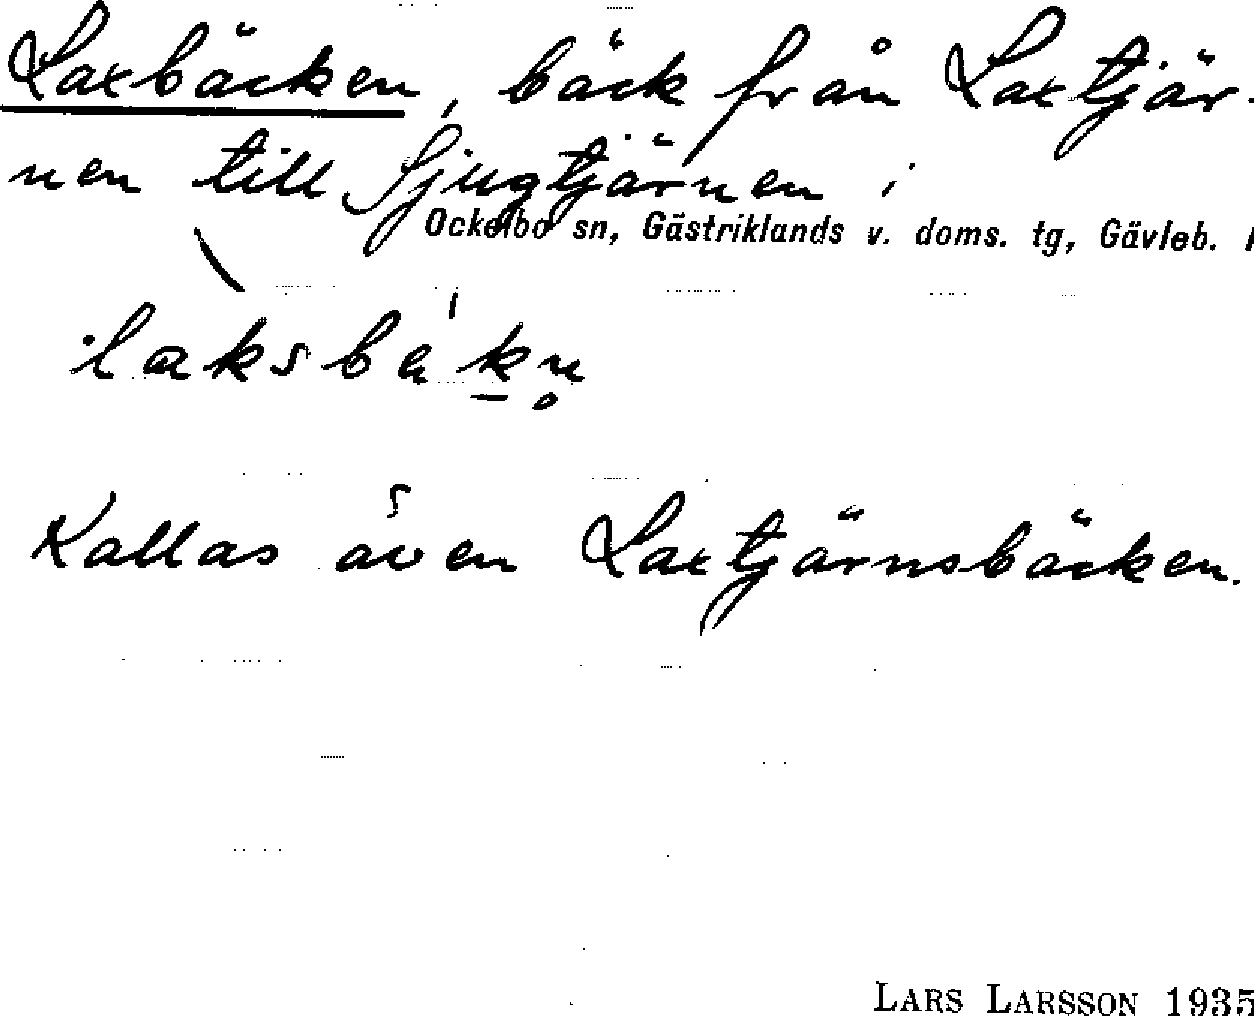 Laxbäcken, bäck från Laxtjär-
nen till Sjugtjärnen i
Ockelbo sn, Gästriklands v. doms. tg, Gävleb. l
Kallas även Laxtjärnsbäcken.
LARS LARSSON 1935